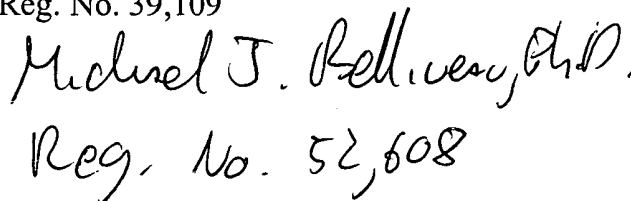 Reg. No. 39,109
Michael J. Belliveau, Ph.D.
Reg. No. 52,608